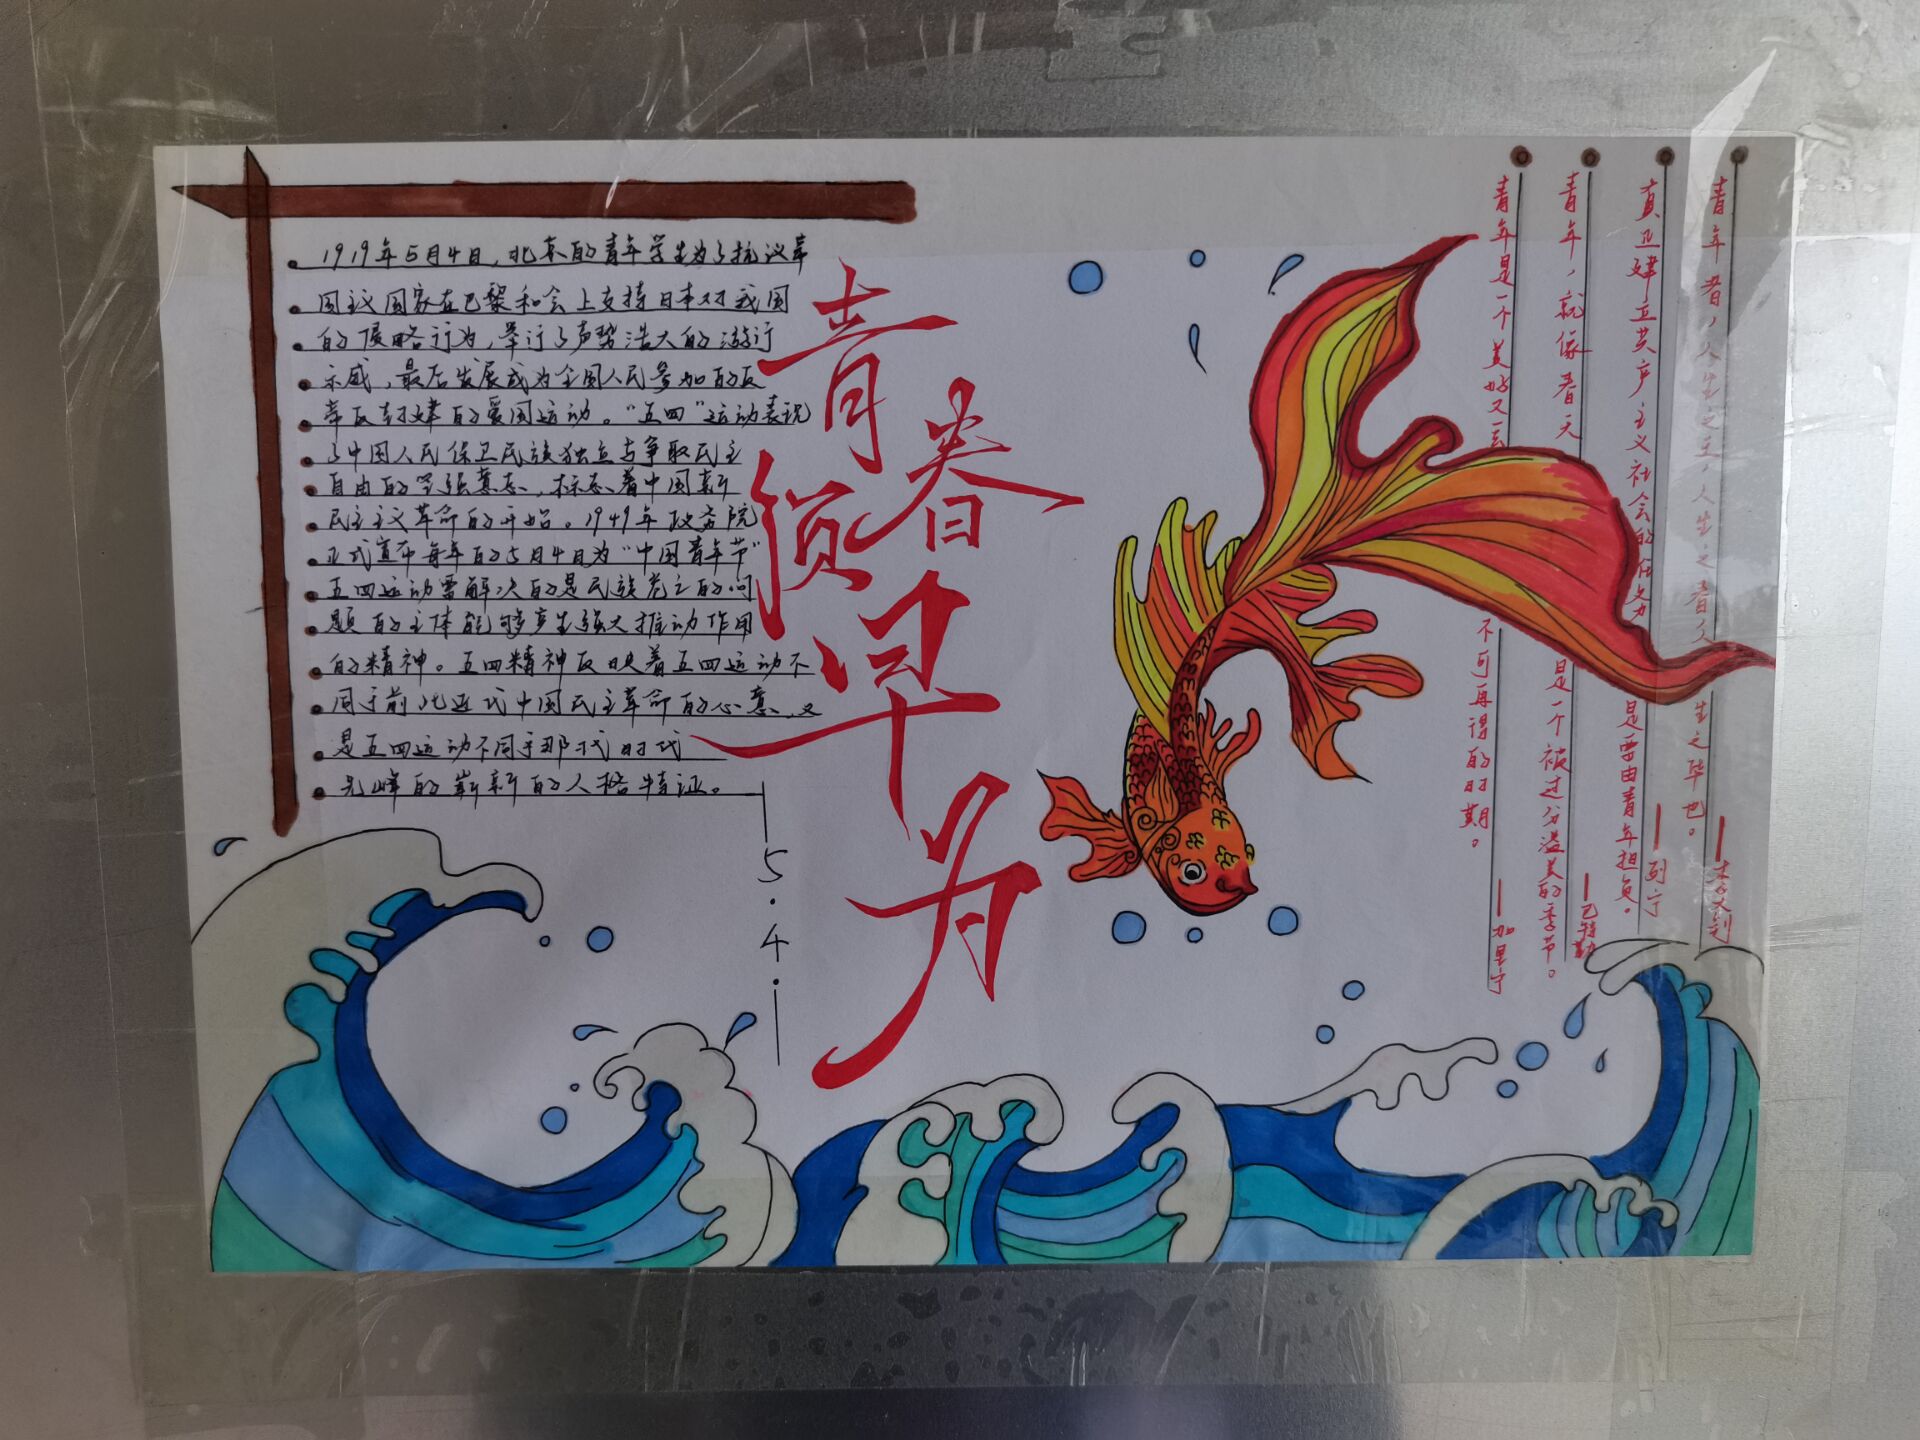 1919年5月4日，北京的青年学生为了抗议帝
国主义国家在巴黎和会上支持日本对我国
的侵略行为，举行了声势浩大的游行
示威，最后发展成为全国人民参加的反
帝反封建的爱国运动。“五四”运动表现
了中国人民保卫民族独立与争取民主
自由的坚强意志，标志着中国新
民主主义革命的开始。1949年政务院
正式宣布每年的5月4日为“中国青年节”
五四运动需解决的是民族危亡的问
题的主体能够产生强大推动作用
的精神。五四精神反映着五四运动不
同于前此近代中国民主革命的心意，又
是五四运动不同于那代时代
先峰的崭新的人格特证。
5.4.
青春
须早为
青年者，人生之王，人生之春，人生之华也。
—李大钊
真正建立共产主义社会的任务是要由青年担负。
—列宁
青年，就像春天是一个被过分溢美的季节。
—巴特勒
青年是一个美好又一去不可再得的时期。
—加里宁